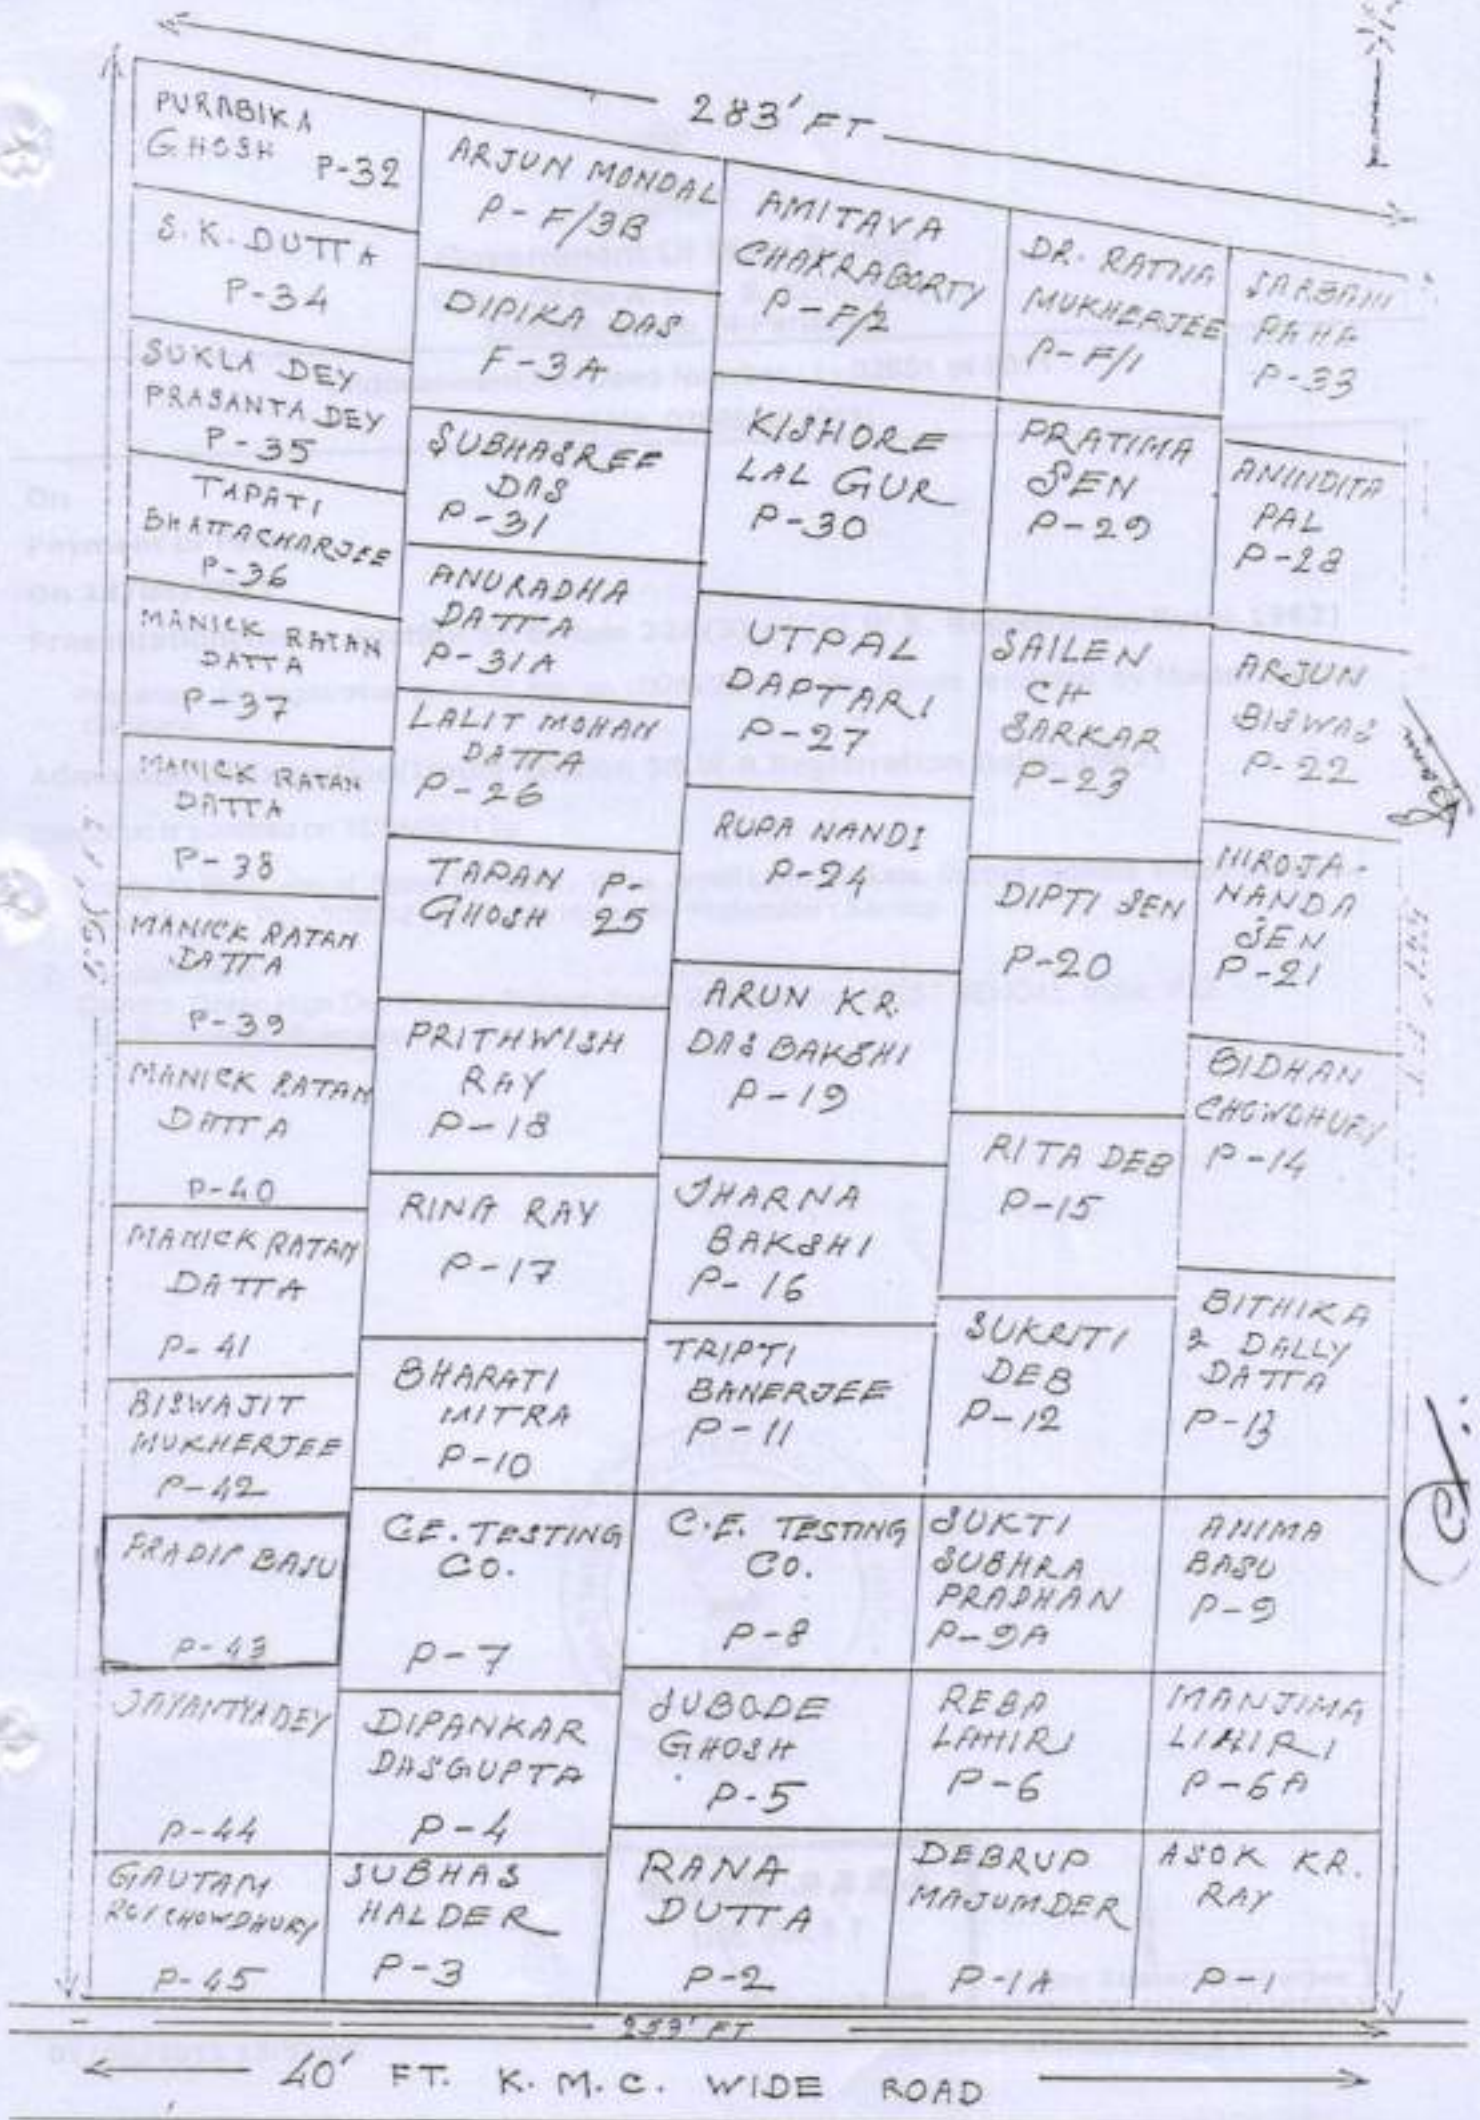 283' FT
PURABIKA
GHOSH P-32
S.K. DUTTA
P-34
SUKLA DEY
PRASANTA DEY
P-35
TAPATI
BHATTACHARJEE
P-36
MANICK RATAN
DATTA
P-37
MANICK RATAN
DATTA
P-38
MANICK RATAN
DATTA
P-39
MANICK RATAN
DATTA
P-40
MANICK RATAN
DATTA
P-41
BISWAJIT
MUKHERJEE
P-42
PRADIP BASU
P-43
JAYANTYADEY
P-44
GAUTAM
ROYCHOWDHURY
P-45
ARJUN MONDAL
P-F/3B
DIPIKA DAS
F-3A
SUBHASREE
DAS
P-31
ANURADHA
DATTA
P-31A
LALIT MOHAN
DATTA
P-26
TAPAN P-
GHOSH 25
PRITHWISH
RAY
P-18
RINA RAY
P-17
BHARATI
MITRA
P-10
C.E. TESTING
CO.
P-7
DIPANKAR
DASGUPTA
P-4
SUBHAS
HALDER
P-3
AMITAVA
CHAKRABORTY
P-F/2
KISHORE
LAL GUR
P-30
UTPAL
DAPTARI
P-27
RUPA NANDI
P-24
ARUN KR.
DAS BAKSHI
P-19
JHARNA
BAKSHI
P-16
TRIPTI
BANERJEE
P-11
C.E. TESTING
CO.
P-8
SUBODE
GHOSH
P-5
RANA
DUTTA
P-2
DR. RATNA
MUKHERJEE
P-F/1
PRATIMA
SEN
P-29
SAILEN
CH
SARKAR
P-23
DIPTI SEN
P-20
RITA DEB
P-15
SUKRITI
DEB
P-12
SUKTI
SUBHRA
PRADHAN
P-9A
REBA
LAHIRI
P-6
DEBRUP
MAJUMDER
P-1A
SARBANI
RAHA
P-33
ANINDITA
PAL
P-28
ARJUN
BISWAS
P-22
NIROJA
NANDA
SEN
P-21
BIDHAN
CHOWDHURY
P-14
BITHIKA
& DALLY
DATTA
P-13
ANIMA
BASU
P-9
MANJIMA
LIHIRI
P-6A
ASOK KR.
RAY
P-1
259' FT
40' FT. K.M.C. WIDE ROAD